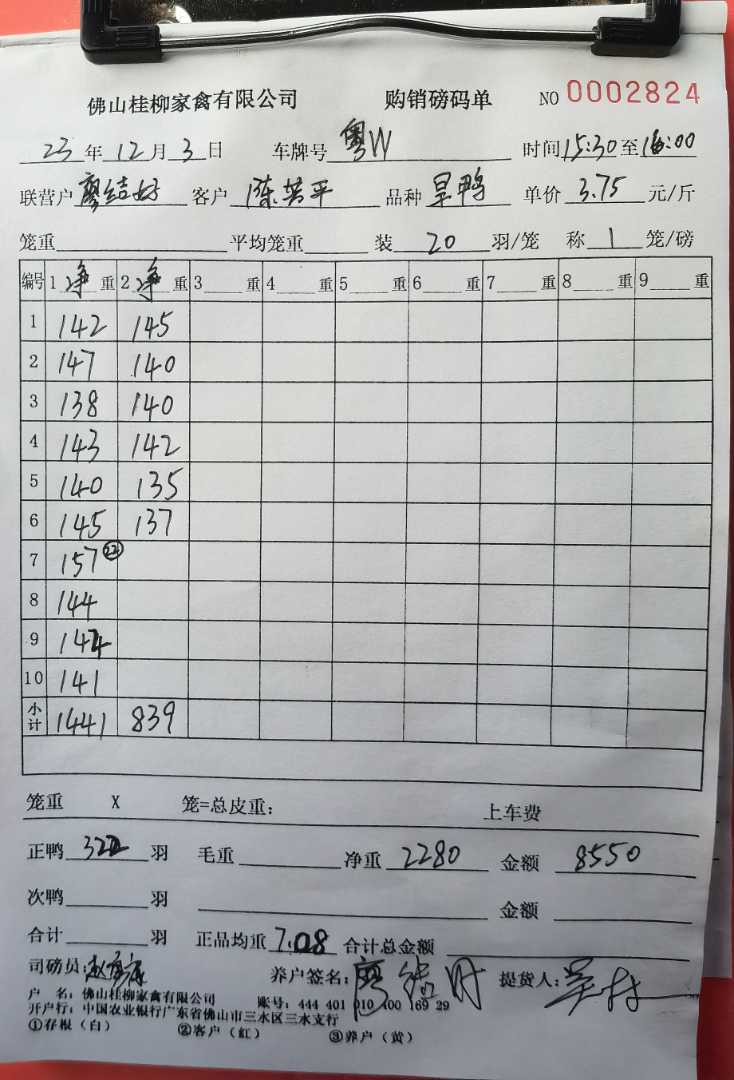 佛山桂柳家禽有限公司 购销磅码单 NO 0002824
23年12月3日 车牌号 粤W 时间15:30至16:00
联营户 廖结好 客户 陈英平 品种 旱鸭 单价 3.75 元/斤
笼重 平均笼重 装 20 羽/笼 称 1 笼/磅
编号 1净重 2净重 3 重 4 重 5 重 6 重 7 重 8 重 9 重
1 142 145
2 147 140
3 138 140
4 143 142
5 140 135
6 145 137
7 157 22
8 144
9 144
10 141
小计 1441 839
笼重 X 笼=总皮重: 上车费
正鸭 322 羽 毛重 净重 2280 金额 8550
次鸭 羽 金额
合计 羽 正品均重 7.08 合计总金额
司磅员: 养户签名: 廖 提货人:
户 名: 佛山桂柳家禽有限公司 账号: 444 401 010 400 169 29
开户行: 中国农业银行广东省佛山市三水区三水支行
①存根(白) ②客户(红) ③养户(黄)